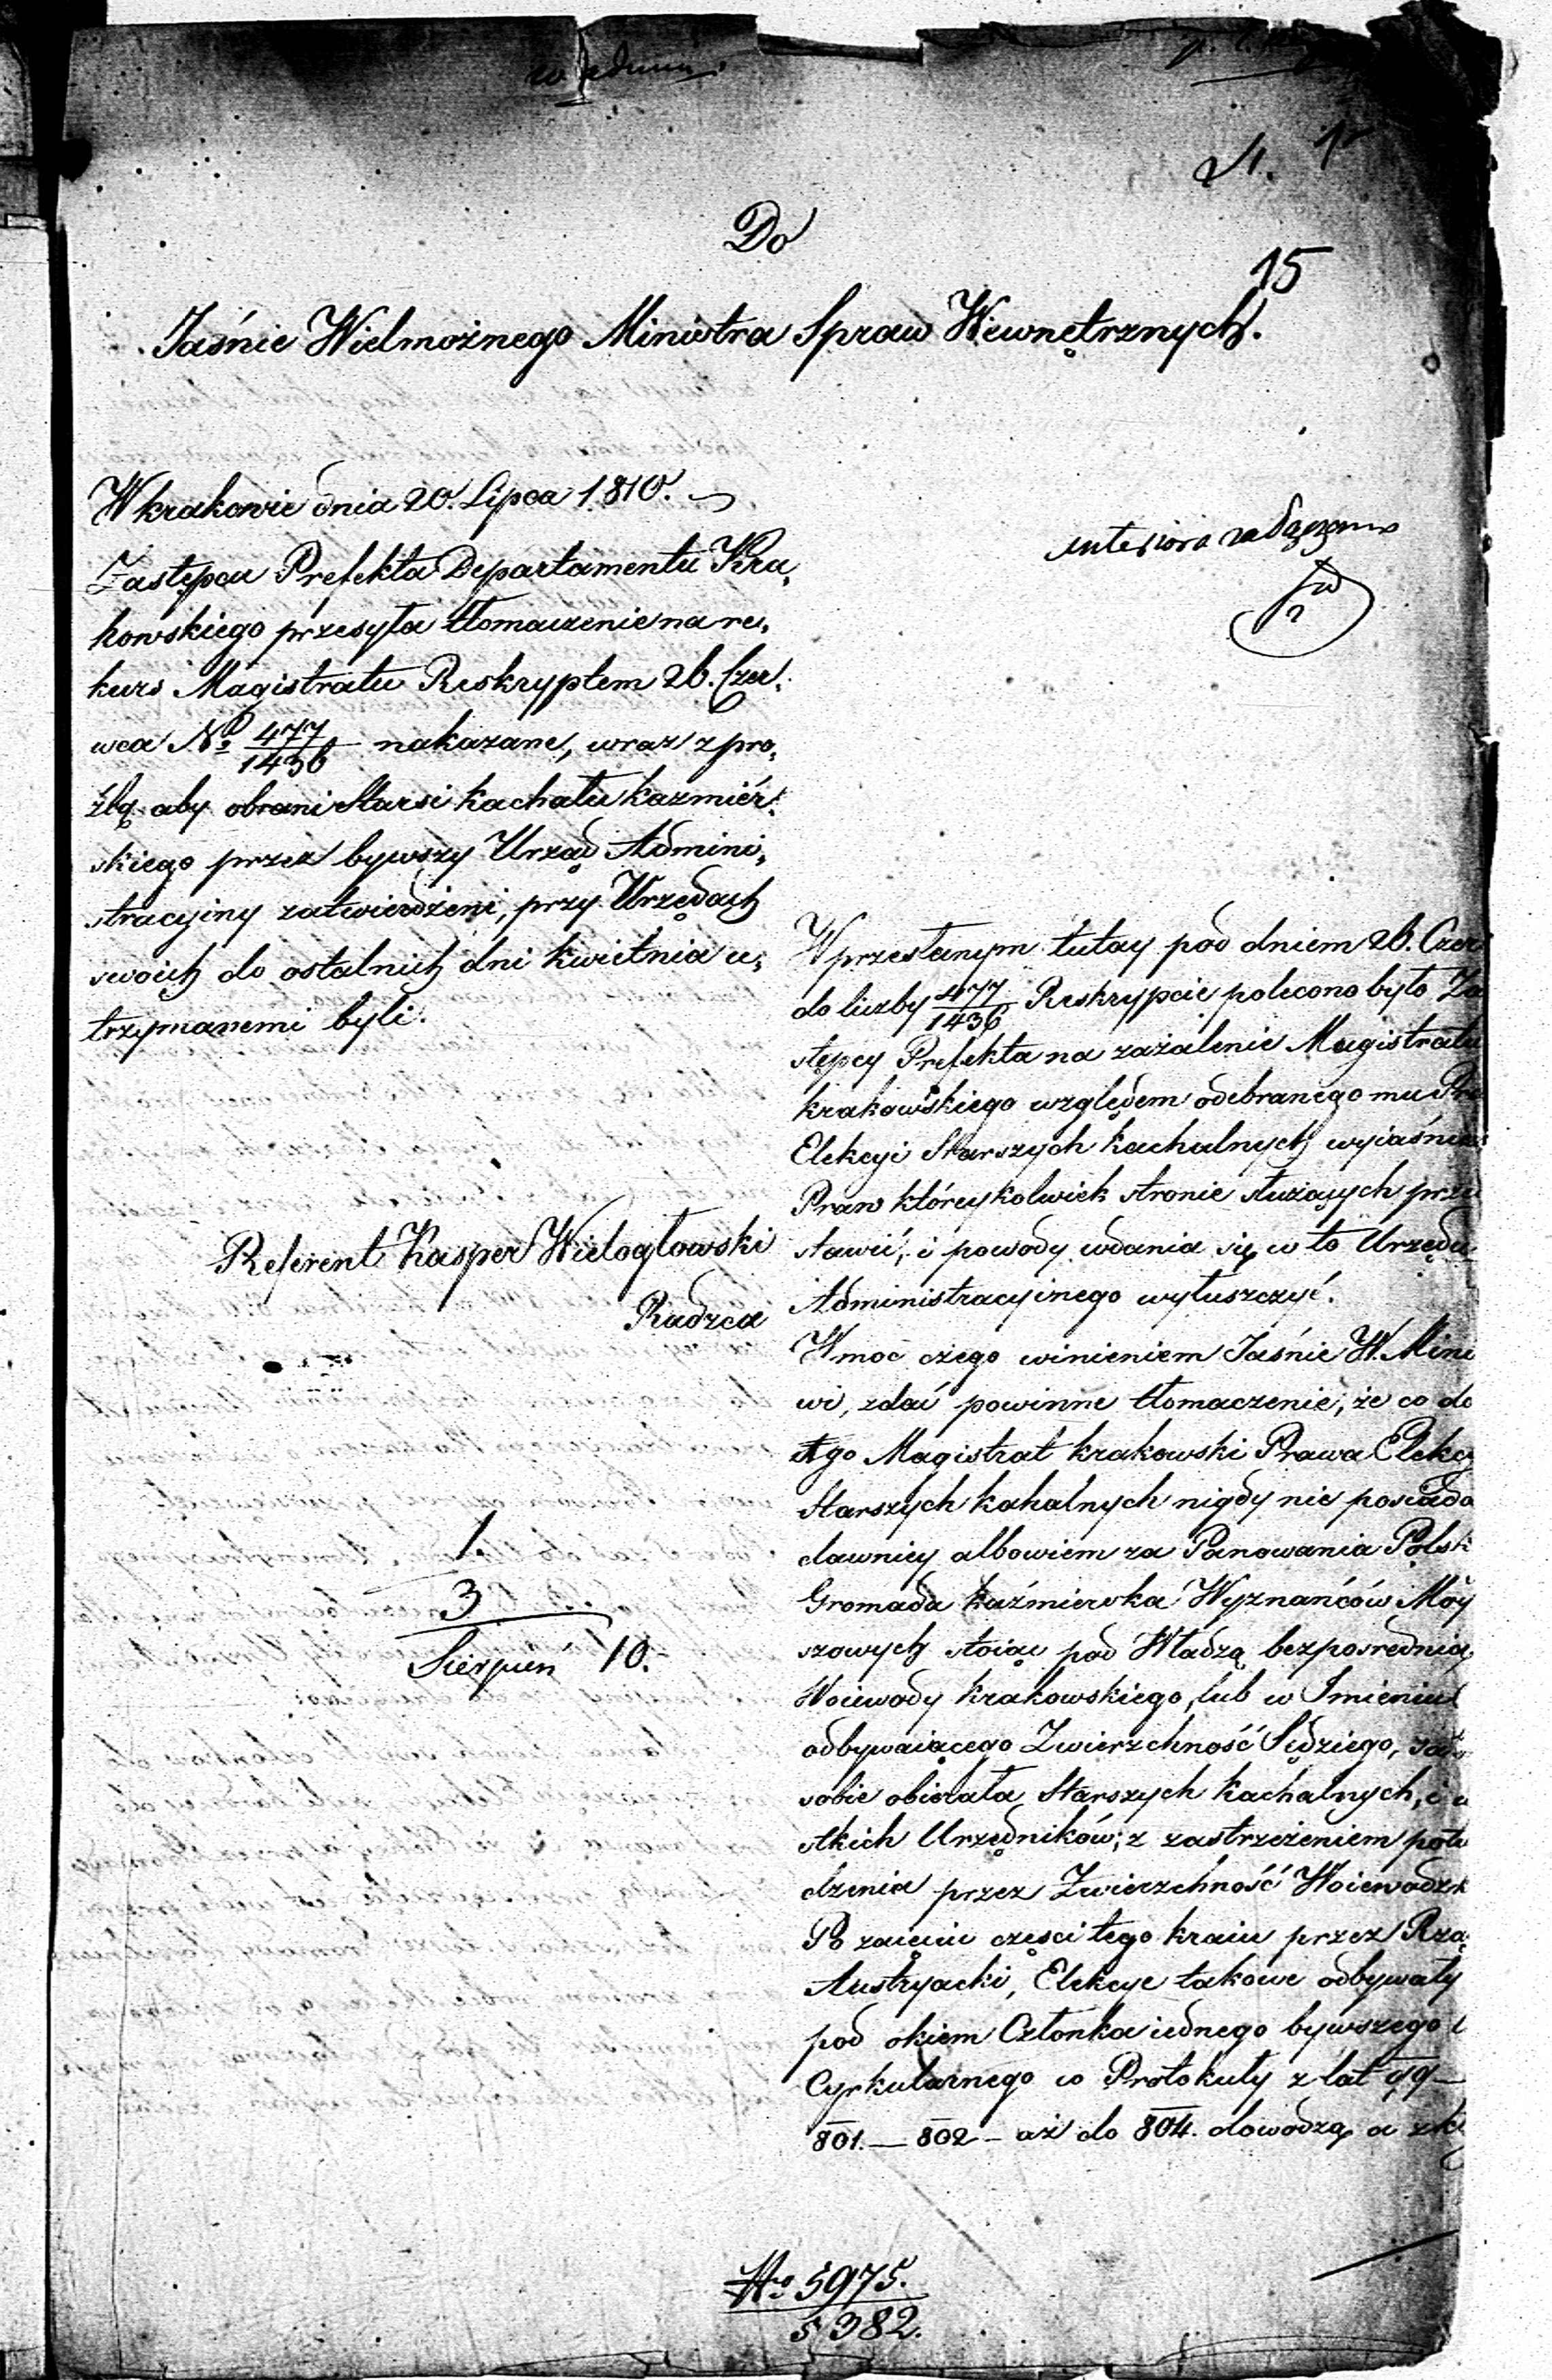 15
Do
Jaśnie Wielmożnego Ministra Spraw Wewnętrznych.
W krakowie dnia 20. Lipca 1810.
Zastępca Prefekta Departamentu Kra,
kowskiego przesyła tłomaczenie na re,
kurs Magistratu Reskryptem 26. Czer,
wca No 477/1436 nakazane, wraz z pro,
źbą aby obrani Starsi Kachału kazmiér,
skiego przez bywszy Urząd Admini,
stracyiny zatwierdzeni, przy Urzędach
swoich do ostatnich dni kwietnia u,
trzymanemi byli.
Referent Kasper Wielogłowski
Radzca
1.
3
Sierpień 10.
anteriora
W przesłanym tutay pod dniem 26. Czer
do liczby 477/1436 Reskrypcie polecono było Za
stępcy Prefekta na zażalenie Magistratu
krakowskiego względem odebranego mu Pra
Elekcyi Starszych kachalnych wyiaśnien
Praw któreykolwiek stronie służących prze
stawić, i powody wdania się w to Urzędu
Administracyinego wyłuszczyć.
W moc czego winieniem Jaśnie W. Mini
wi, zdać powinne tłomaczenie, że co do
1go Magistrat krakowski Prawa Elekcy
Starszych kahalnych nigdy nie posiada
dawniey albowiem za Panowania Polsk
Gromada kaźmierska Wyznańców Moy
szowych stoiąc pod Władzą bezpośrednią
Woiewody krakowskiego, lub w Imieniu
odbywaiącego Zwierzchność Sędziego,
sobie obierała Starszych kachalnych, i w
stkich Urzędników; z zastrzeżeniem potw
dzenia przez Zwierzchność Woiewodzk
Po zaięciu części tego kraiu przez Rzą
Austryacki, Elekcye takowe odbywały
pod okiem Członka iednego bywszego
Cyrkularnego co Protokuły z lat 99 —
801. — 802 — aż do 804. dowodzą, a
No 5975.
5382.